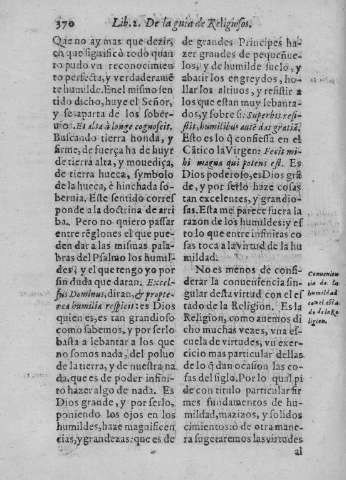 370 Lib. 2. De la guia de Religiosos.
Que no ay mas que dezir,
en que significò todo quan
to pudo vn reconocimien
to perfecta, y verdaderamẽ
te humilde. En el mismo sen
tido dicho, huye el Señor,
y se aparta de los sober-
uios. Et alta à longe cognoscit.
Buscando tierra honda, y
firme, de fuerça ha de huyr
de tierra alta, y mouediça,
de tierra hueca, symbolo
de la hueca, è hinchada so-
beruia. Este sentido corres
ponde a la doctrina de arri
ba. Pero no quiero passar
entre rẽglones el que pue-
den dar a las mismas pala-
bras del Psalmo los humil-
des, y el que tengo yo por
sin duda que daran. Excel-
sus Dominus, diran, & propte-
rea humilia respicit: es Dios
quien es, es tan grandioso
como sabemos, y por serlo
basta a leuantar a los que
no somos nada, del poluo
de la tierra, y de nuestra na
da, que es de poder infini-
to hazer algo de nada. Es
Dios grande, y por serlo,
poniendo los ojos en los
humildes, haze magnificen
cias, y grandezas: que es de
de grandes Principes ha-
zer grandes de pequeñue-
los, y de humilde suelo, y
abatir los engreydos, ho-
llar los altiuos, y resistir a
los que estan muy lebanta-
dos, y sobre si: Superbis resi-
stit, humilibus autẽ das gratiã.
Esto es lo q̃ consiessa en el
Cãtico la Virgen: Fecit mi-
hi magna qui potens est. Es
Dios poderoso, es Dios grã
de, y por serlo haze cosas
tan excelentes, y grandio-
sas. Esta me parece fuera la
razon de los humildes: y es
to lo que entre infinitas co
sas toca a la virtud de la hu
mildad.
No es menos de consi-
derar la conueniencia sin-
gular desta virtud con el es
tado de la Religion. Es la
Religion, como auemos di
cho muchas vezes, vna es-
cuela de virtudes, vn exer-
cicio mas particular dellas
de lo q̃ dan ocasion las co-
sas del siglo. Por lo qual pi
de con titulo particular fir
mes fundamentos de hu-
mildad, mazizos, y solidos
cimientos: ò de otra mane-
ra sugetaremos las virtudes
al
Conuenien
cia de la
humildad
con el esta
do de la Re
ligion.